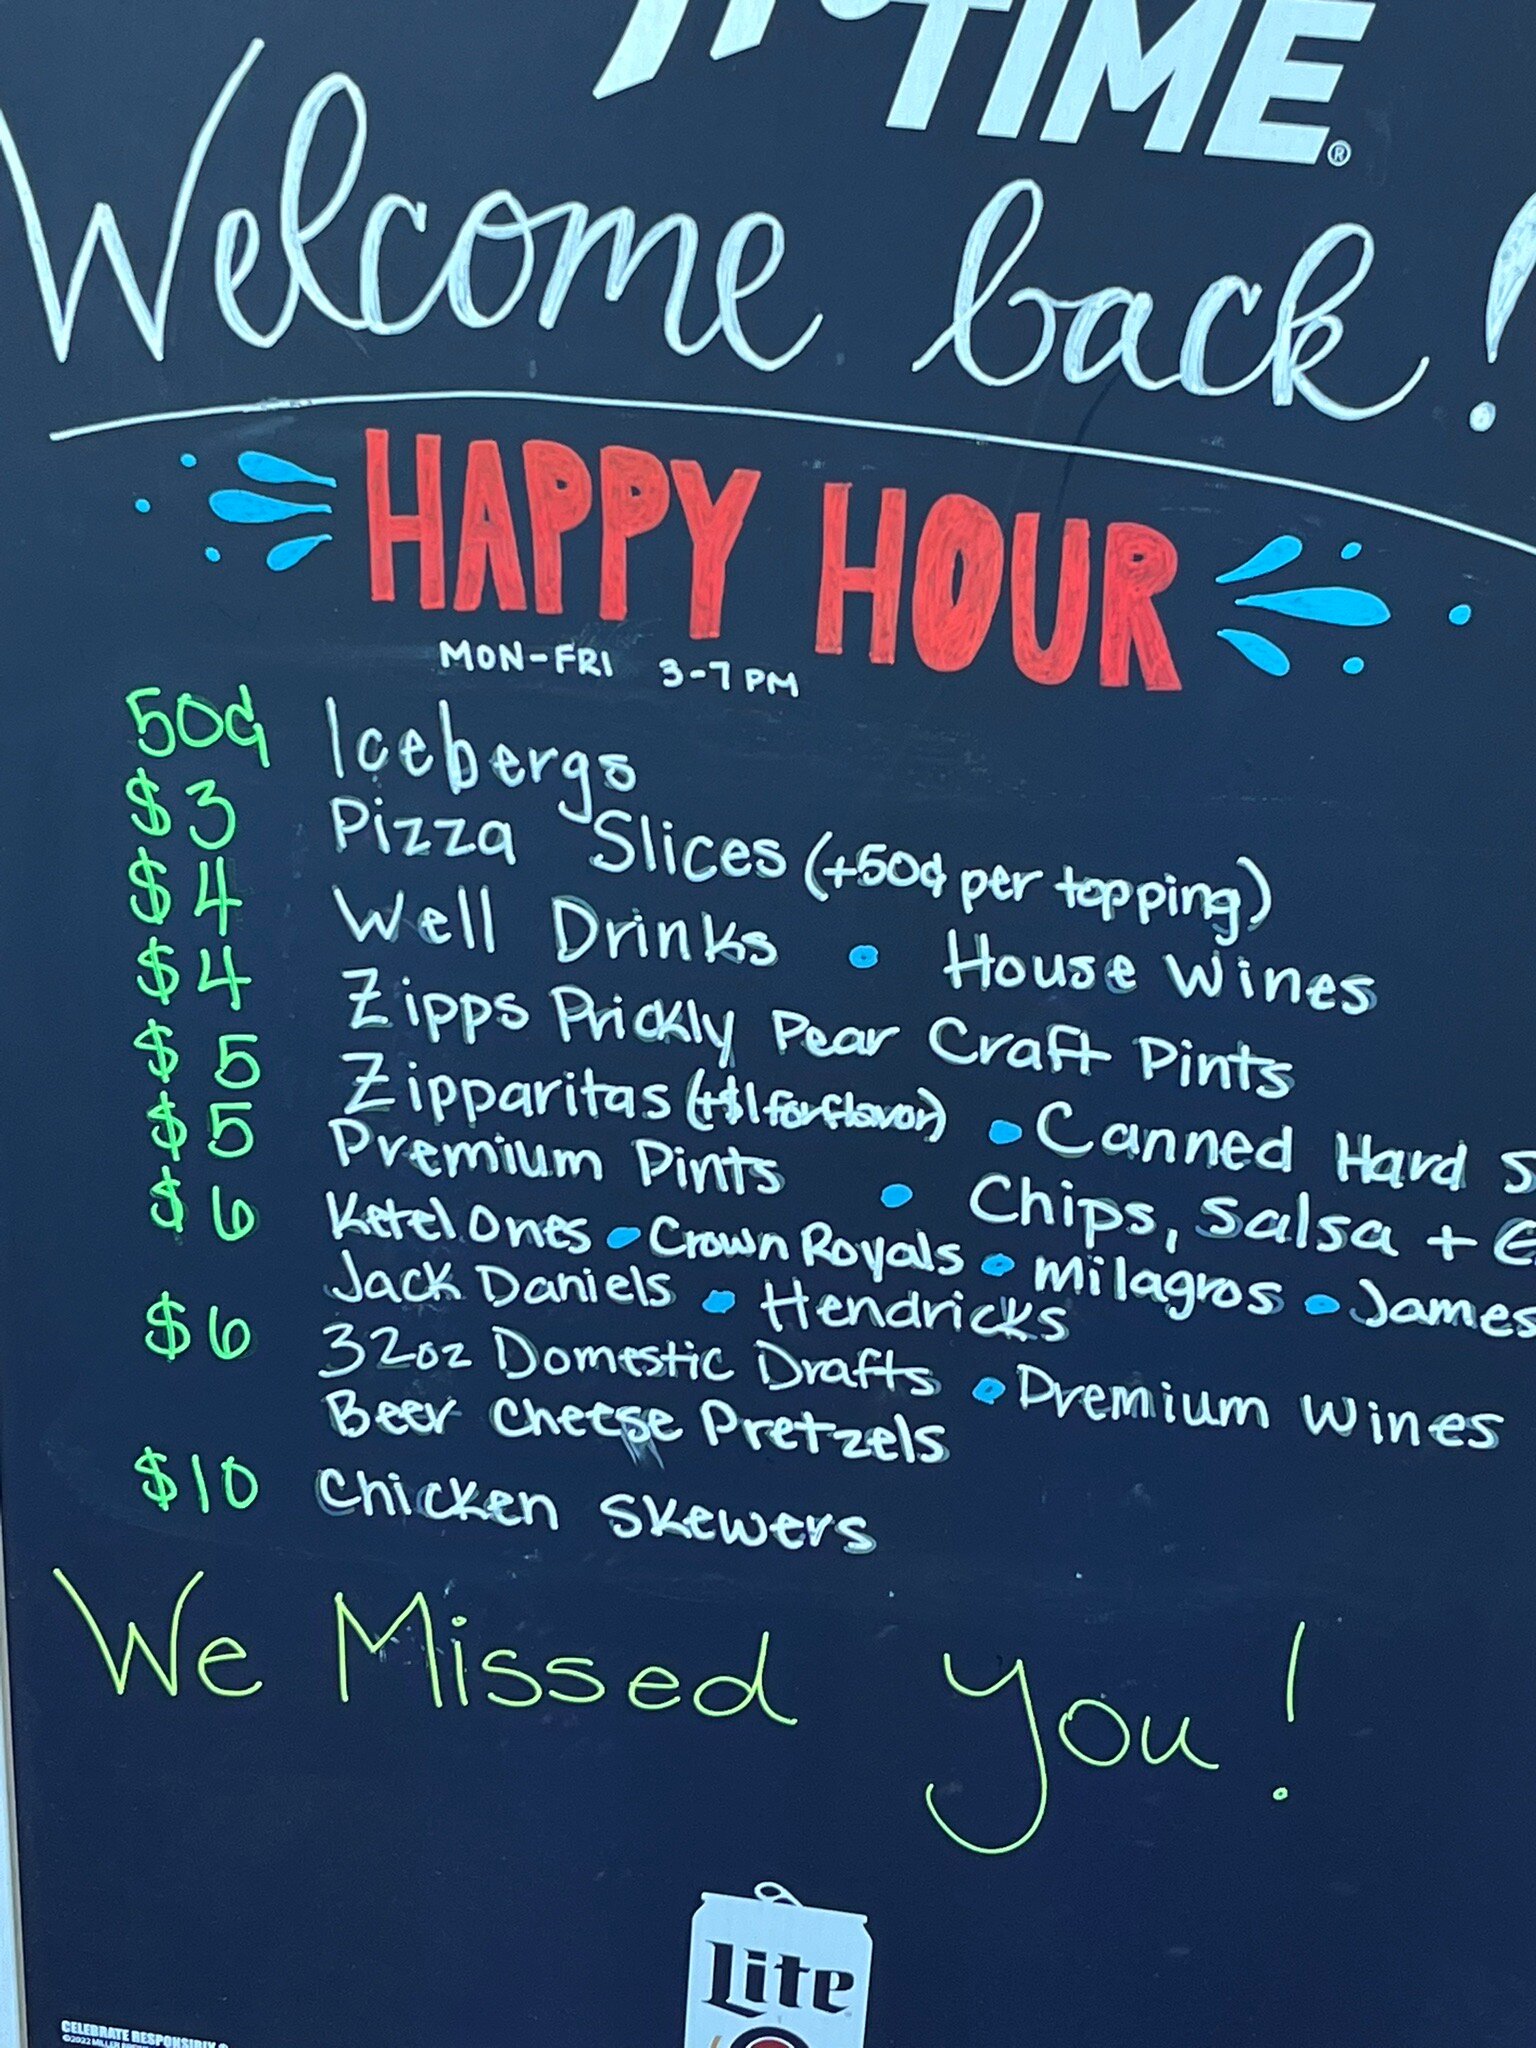 TIME®
Welcome back!
HAPPY HOUR
MON-FRI 3-7 PM
50¢ Icebergs
$3 Pizza Slices (+50¢ per topping)
$4 Well Drinks • House Wines
$4 Zipps Prickly Pear Craft Pints
$5 Zipparitas (+$1 for flavor) • Canned Hard S
$5 Premium Pints • Chips, Salsa +
$6 Ketel Ones • Crown Royals • Milagros • James
Jack Daniels • Hendricks
$6 32oz Domestic Drafts • Premium Wines
Beer Cheese Pretzels
$10 Chicken Skewers
We Missed you!
Lite
CELEBRATE RESPONSIBLY
©2022 MILLER